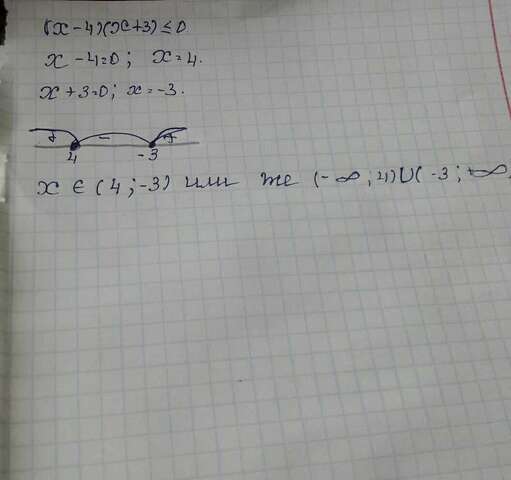 (x-4)(x+3)≤0
x-4=0; x=4.
x+3=0; x=-3.
+ - +
4 -3
x ∈ (4;-3) или же (-∞;4)∪(-3;+∞